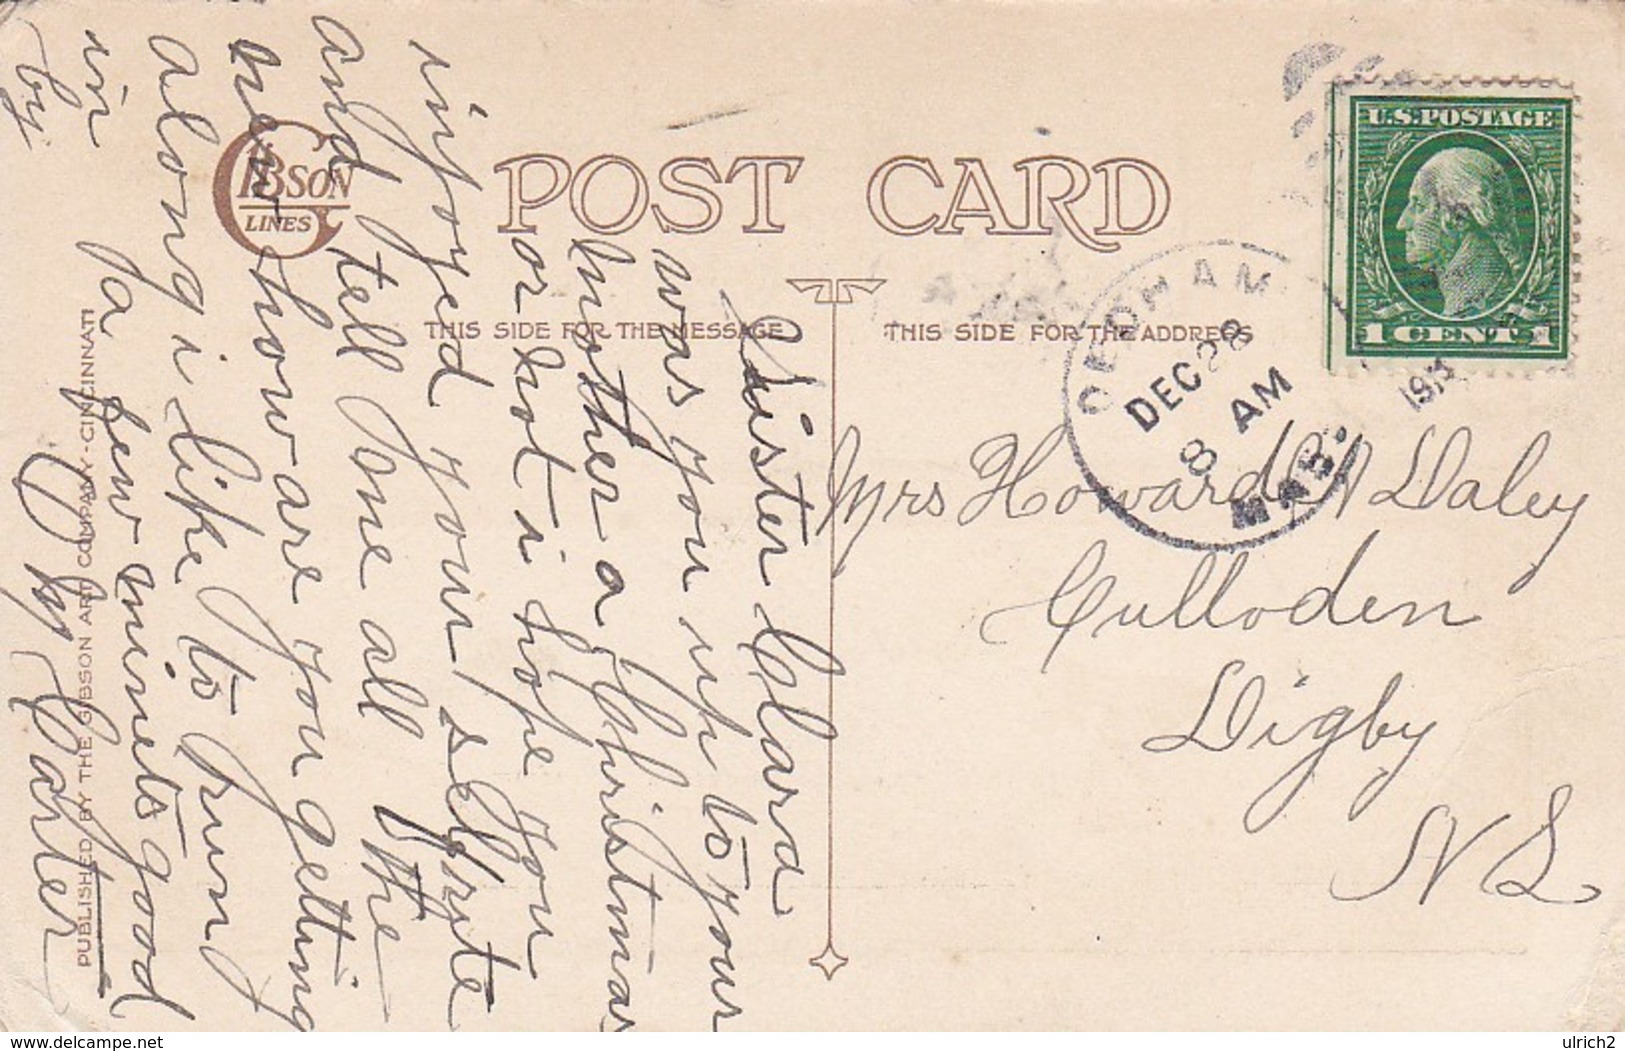 GIBSON
LINES
POST CARD
THIS SIDE FOR THE MESSAGE
THIS SIDE FOR THE ADDRESS
U.S. POSTAGE
1 CENT 1
DEDHAM
DEC 28
8 AM
MASS.
191
Sister Clara
was you up to your
mother a Christmas
or not i hope you
injoyed your self rite
and tell me all the
new how are you getting
along i like to run
in fa few minets good
by
by Carter
Mrs Howard A Daley
Culloden
Digby
N S
PUBLISHED BY THE GIBSON ART COMPANY - CINCINNATI
www.delcampe.net
ulrich2